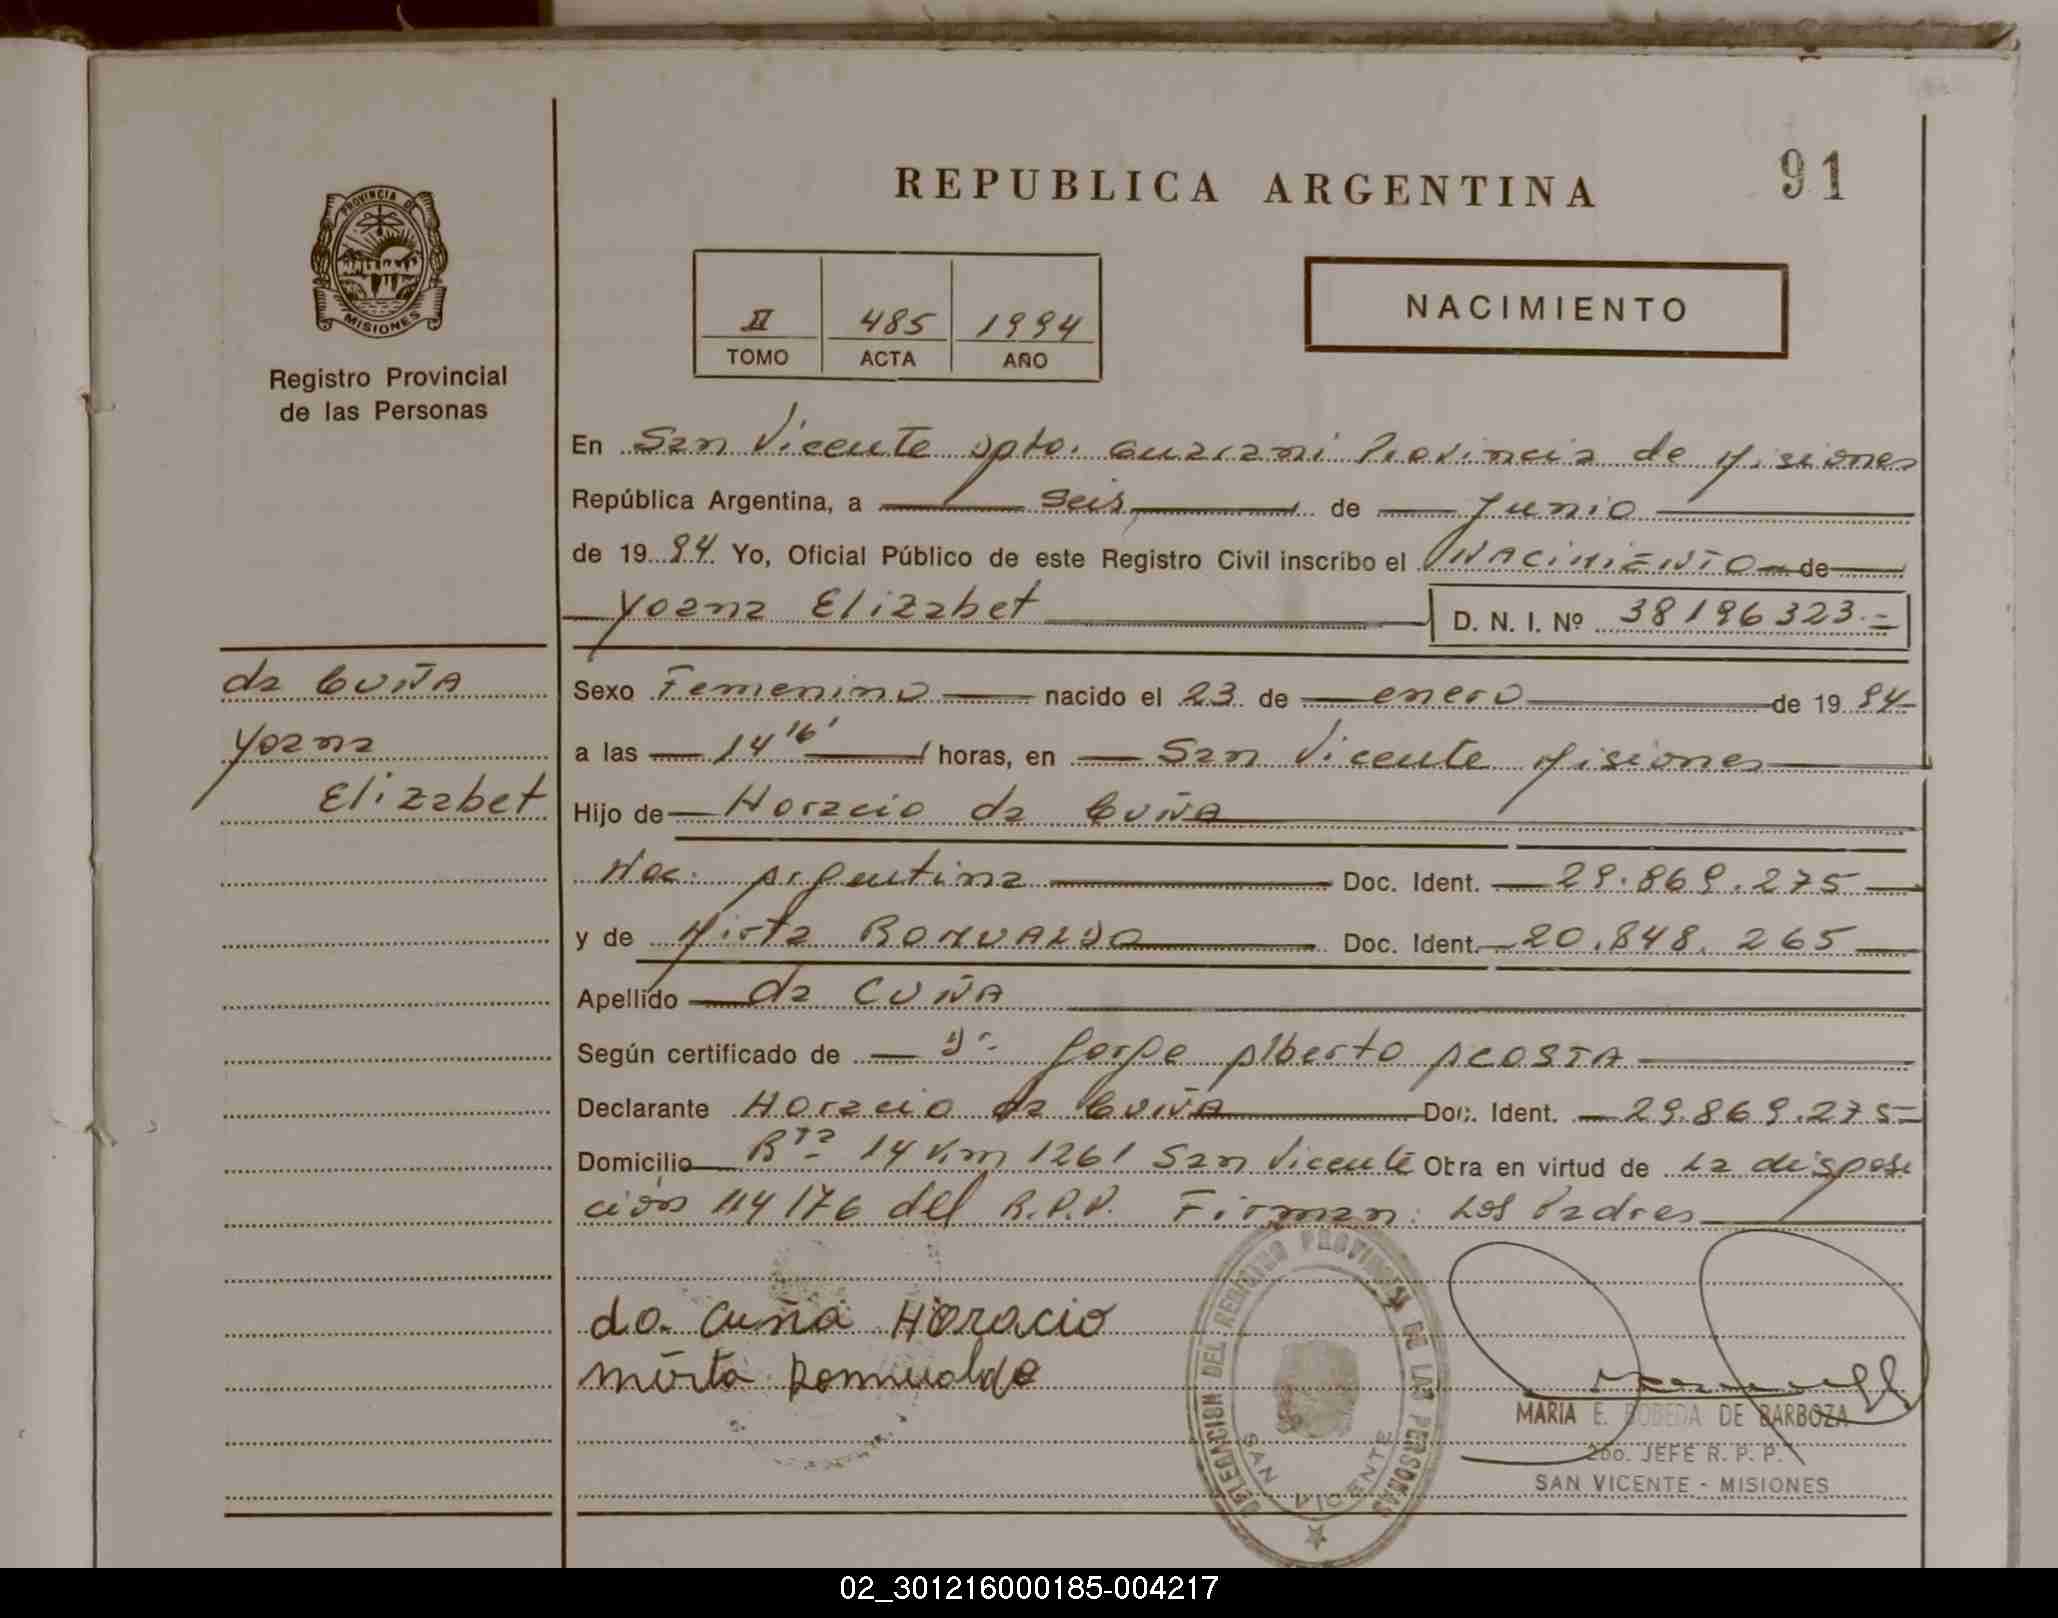 REPUBLICA ARGENTINA
91
PROVINCIA DE
MISIONES
Registro Provincial
de las Personas
II 485 1994
TOMO ACTA AÑO
NACIMIENTO
En San Vicente Dpto. Guarani Provincia de Misiones
República Argentina, a seis de Junio
de 1994 Yo, Oficial Público de este Registro Civil inscribo el NACIMIENTO de
Yoana Elizabet D. N. I. Nº 38196323.=
da CUÑA
Yoana
Elizabet
Sexo Femenino nacido el 23 de enero de 1994
a las 14 16' horas, en San Vicente Misiones
Hijo de Horacio da CUÑA
Nac. Argentina Doc. Ident. 29.869.275
y de Mirta ROMUALDO Doc. Ident. 20.848.265
Apellido da CUÑA
Según certificado de Dr. Jorge Alberto ACOSTA
Declarante Horacio da CUÑA Doc. Ident. 29.869.275=
Domicilio Rta 14 Km 1261 San Vicente Obra en virtud de La disposi
ción 114/76 del R.P.P. Firman: Los Padres
da Cuña Horacio
mirta Romualdo
DELEGACION DEL REGISTRO PROVINCIAL DE LAS PERSONAS
SAN VICENTE
MARIA E. BOBEDA DE BARBOZA
2do. JEFE R. P. P.
SAN VICENTE - MISIONES
02_301216000185-004217